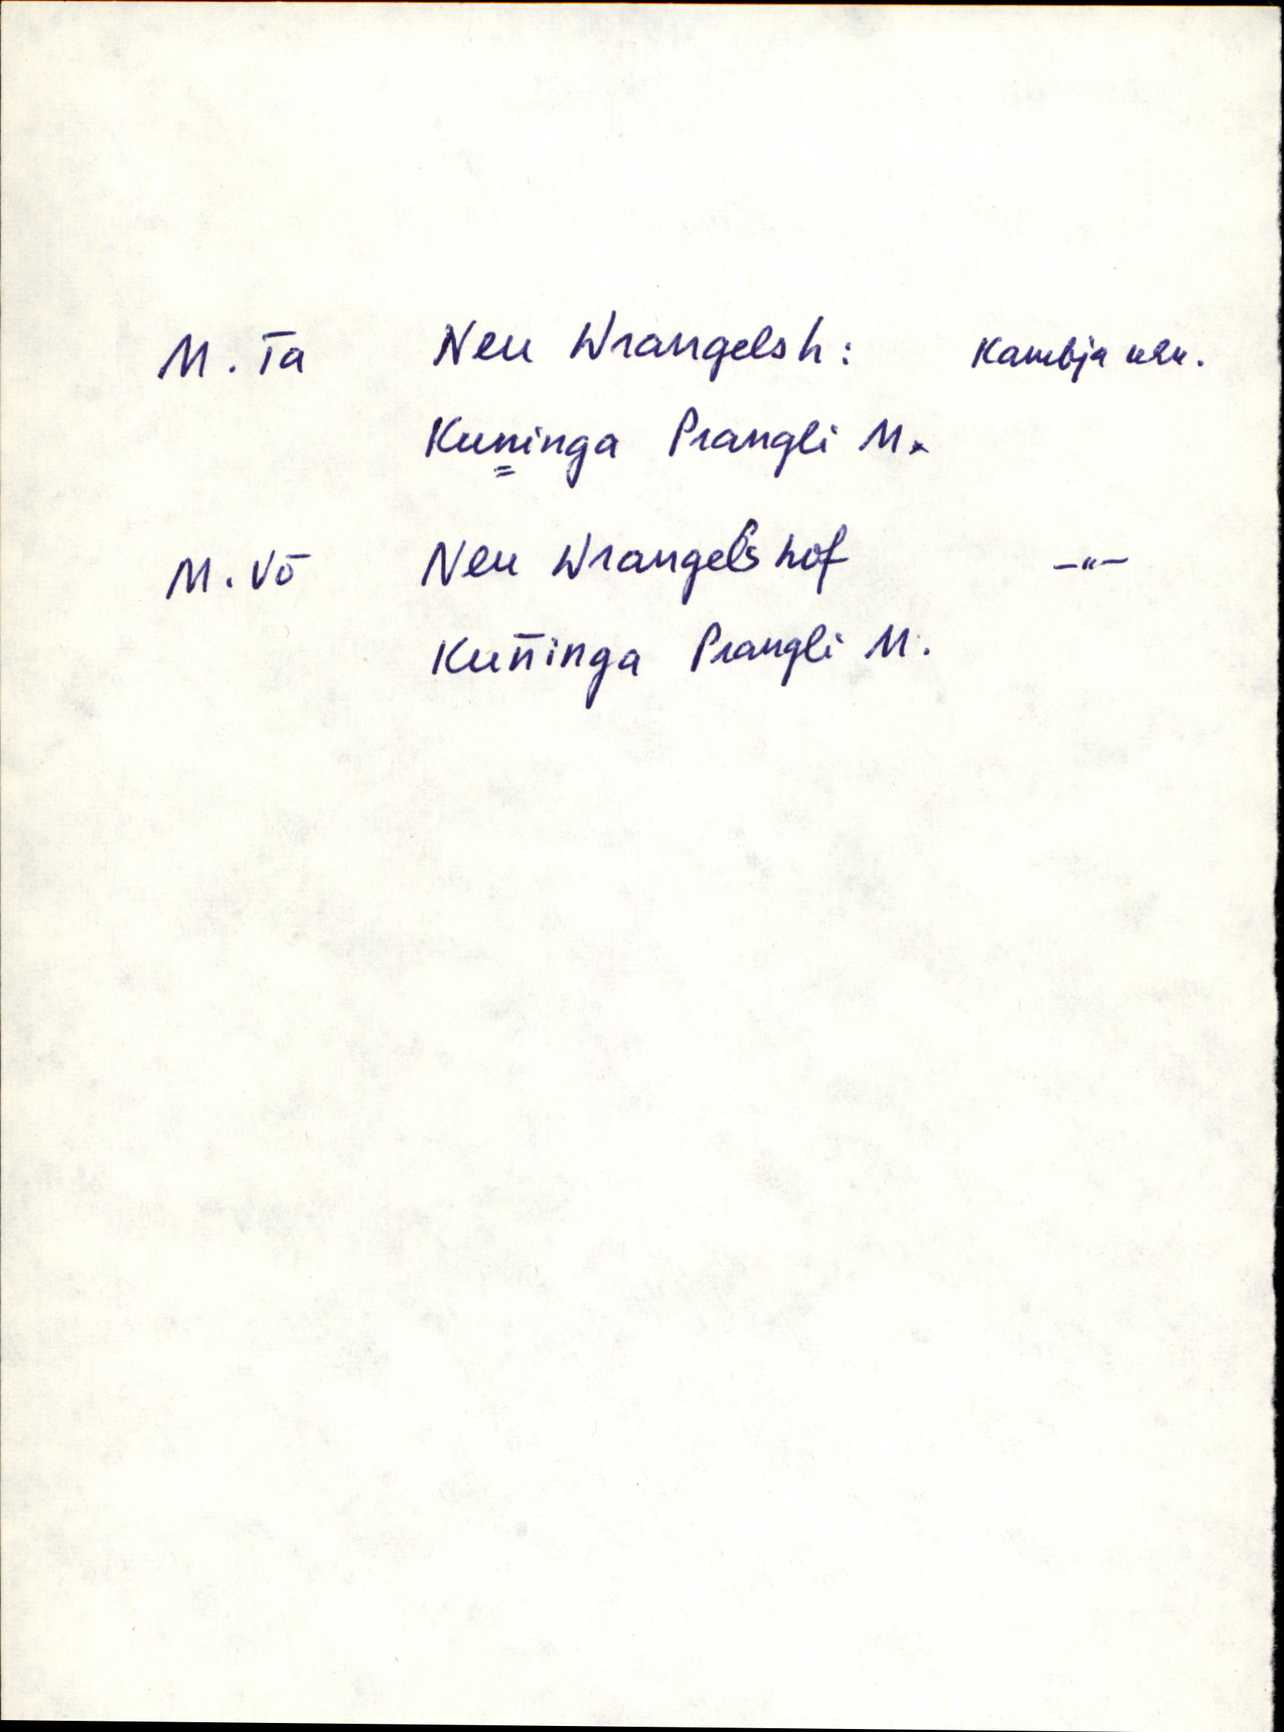 M. Ta Neu Wrangelsh: Kambja
Kuninga Prangli M.
M. Võ Neu Wrangelshof —"—
Kun̄inga Prangli M.